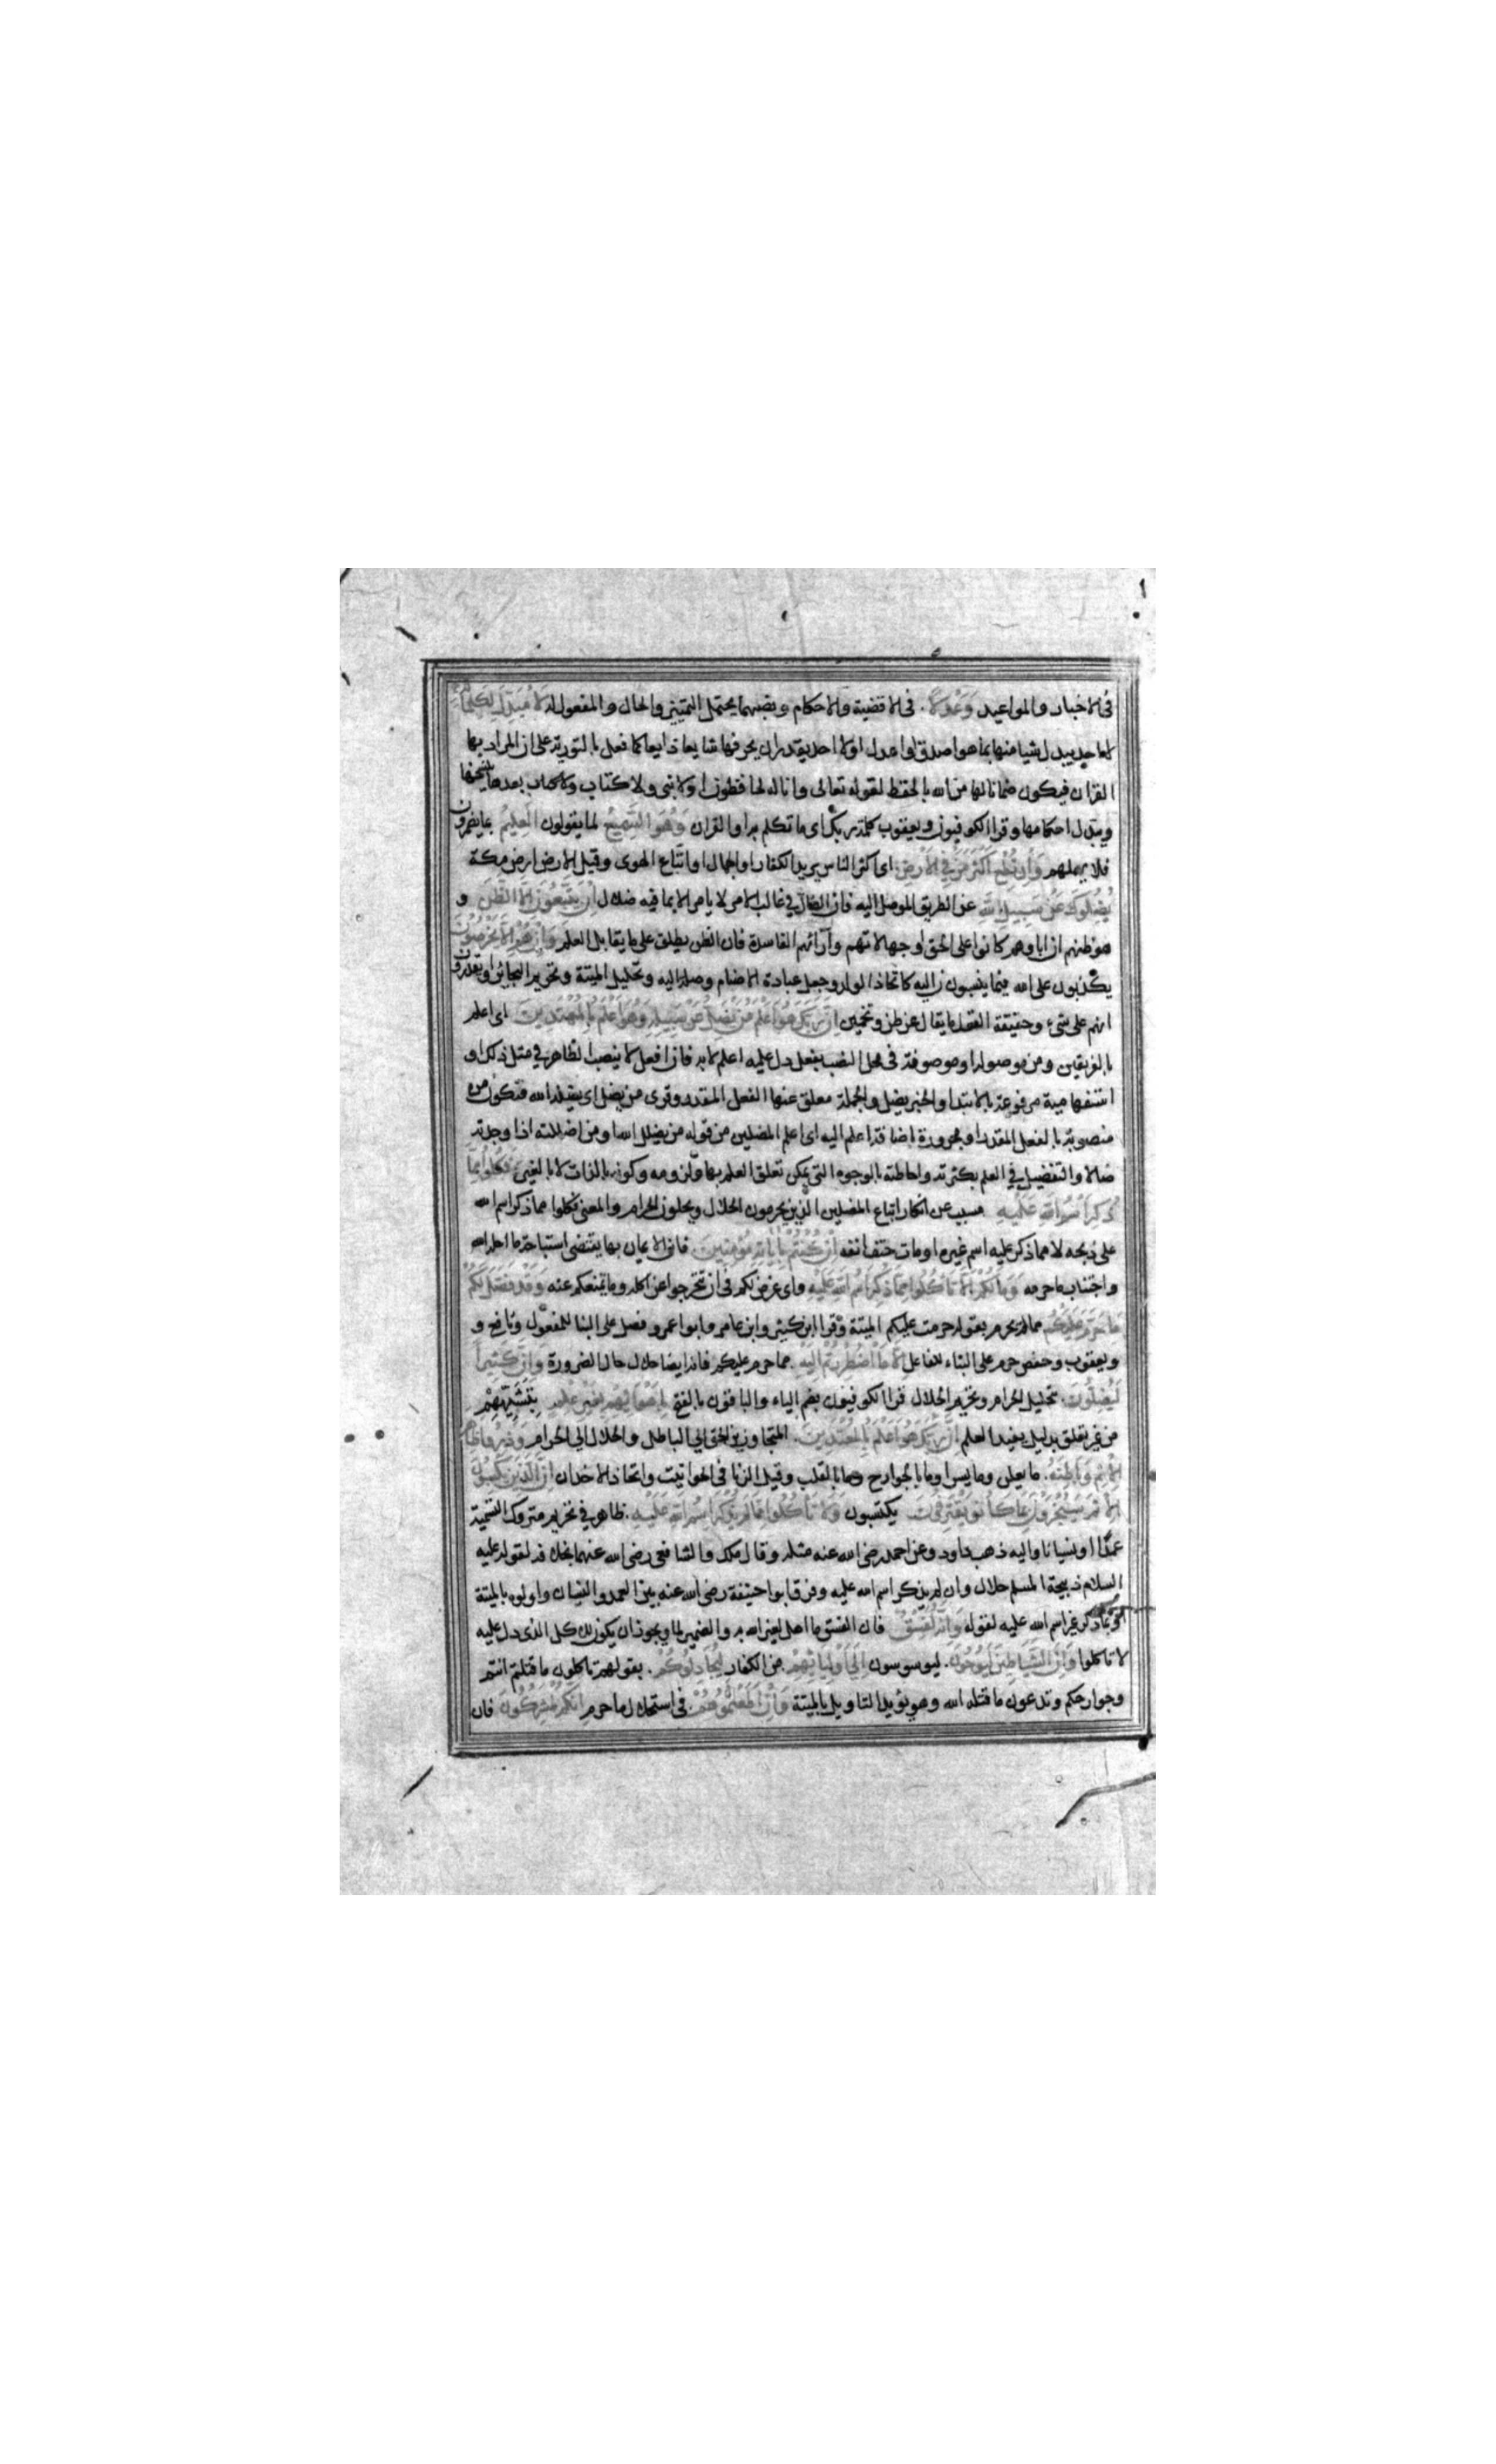 فى الاخبار والمواعيد وَعَدْلًا. فى الاقضية والاحكام ونصبهما يحتمل التمييز والحال والمفعول له لَا مُبَدِّلَ لِكَلِمَاتِهِ
لا احد يبدل شيا منها بما هو اصدق او اعدل او لا احد يقدر ان يحرفها شايعا ذايعا كما فعل بالتورية على ان المراد بها
القران فيكون ضمانا لها من الله بالحفظ لقوله تعالى وانا له لحافظون او لا نبى ولا كتاب بعدها ينسخها
ويبدل احكامها وقرا الكوفيون ويعقوب كلمة ربك اى ما تكلم به او القران وَهُوَ السَّمِيعُ لما يقولون الْعَلِيمُ بما يضمرون
فلا يهملهم وَإِنْ تُطِعْ أَكْثَرَ مَنْ فِي الْأَرْضِ. اى اكثر الناس يريد الكفار او الجهال او اتباع الهوى وقيل الارض ارض مكة
يُضِلُّوكَ عَنْ سَبِيلِ اللَّهِ عن الطريق الموصل اليه فان الضال فى غالب الامر لا يامر الا بما فيه ضلال إِنْ يَتَّبِعُونَ إِلَّا الظَّنَّ و
هو ظنهم ان اباوهم كانوا على الحق او جهالاتهم وآرائهم الفاسدة فان الظن يطلق على ما يقابل العلم وَإِنْ هُمْ إِلَّا يَخْرُصُونَ
يكذبون على الله فيما ينسبون اليه كاتخاذ الولد وجعل عبادة الاصنام وصلة اليه وتحليل الميتة وتحريم البحائر او يقدرون
انهم على شىء وحقيقة الفعل ما يقال عن ظن وتخمين إِنَّ رَبَّكَ هُوَ أَعْلَمُ مَنْ يَضِلُّ عَنْ سَبِيلِهِ وَهُوَ أَعْلَمُ بِالْمُهْتَدِينَ اى اعلم
بالفريقين ومن موصولة او موصوفة فى محل النصب بفعل دل عليه اعلم لا به فان افعل لا ينصب الظاهر فى مثل ذلك او
استفهامية مرفوعة بالابتدا والخبر يضل والجملة معلق عنها الفعل المقدر وقرى من يضل اى يضله الله فتكون من
منصوبة بالفعل المقدر او مجرورة باضافة اعلم اليه اى اعلم المضلين من قوله من يضلل الله او من اضللته اذا وجدته
ضالا والتفضيل فى العلم بكثرته واحاطته بالوجوه التى يمكن تعلق العلم بها ولزومه وكونه بالذات لا بالغير فَكُلُوا مِمَّا
ذُكِرَ اسْمُ اللَّهِ عَلَيْهِ مسبب عن انكار اتباع المضلين الذين يحرمون الحلال ويحلون الحرام والمعنى فكلوا مما ذكر اسم الله
على ذبحه لا مما ذكر عليه اسم غيره او مات حتف انفه إِنْ كُنْتُمْ بِآيَاتِهِ مُؤْمِنِينَ. فان الايمان بها يقتضى استباحة ما احله الله
واجتناب ما حرمه وَمَا لَكُمْ أَلَّا تَأْكُلُوا مِمَّا ذُكِرَ اسْمُ اللَّهِ عَلَيْهِ واى غرض لكم فى ان تتحرجوا عن اكله وما يمنعكم عنه وَقَدْ فَصَّلَ لَكُمْ
مَا حَرَّمَ عَلَيْكُمْ مما لم يحرم بقوله حرمت عليكم الميتة وقرا ابن كثير وابن عامر وابو عمرو فصل على البنا للمفعول ونافع و
ويعقوب وحفص حرم على البناء للفاعل إِلَّا مَا اضْطُرِرْتُمْ إِلَيْهِ. مما حرم عليكم فانه ايضا حلال حال الضرورة وَإِنَّ كَثِيرًا
لَيُضِلُّونَ. بتحليل الحرام وتحريم الحلال قرا الكوفيون بضم الياء والباقون بالفتح بِأَهْوَائِهِمْ بِغَيْرِ عِلْمٍ بتشهيهم
من غير تعلق بدليل يفيد العلم إِنَّ رَبَّكَ هُوَ أَعْلَمُ بِالْمُعْتَدِينَ. المتجاوزين الحق الى الباطل والحلال الى الحرام وَذَرُوا ظَاهِرَ
الْإِثْمِ وَبَاطِنَهُ. ما يعلن وما يسر او ما بالجوارح وما بالقلب وقيل الزنا فى الحوانيت واتخاذ الاخدان إِنَّ الَّذِينَ يَكْسِبُونَ
الْإِثْمَ سَيُجْزَوْنَ بِمَا كَانُوا يَقْتَرِفُونَ يكتسبون وَلَا تَأْكُلُوا مِمَّا لَمْ يُذْكَرِ اسْمُ اللَّهِ عَلَيْهِ. ظاهر فى تحريم متروك التسمية
عمدًا او نسيانا واليه ذهب داود وعن احمد رضى الله عنه مثله وقال ملك والشافعى رضى الله عنهما بخلافه لقوله عليه
السلام ذبيحة المسلم حلال وان لم يذكر اسم الله عليه وفرق ابو حنيفة رضى الله عنه بين العمد والنسيان واوله بالميتة
او بما ذكر غير اسم الله عليه لقوله وَإِنَّهُ لَفِسْقٌ فان الفسق ما اهل لغير الله به والضمير لما ويجوز ان يكون للاكل الذى دل عليه
لا تاكلوا وَإِنَّ الشَّيَاطِينَ لَيُوحُونَ. ليوسوسون إِلَى أَوْلِيَائِهِمْ. من الكفار لِيُجَادِلُوكُمْ. بقولهم تاكلون ما قتلتم انتم
وجوارحكم وتدعون ما قتله الله وهو يؤيد التاويل بالميتة وَإِنْ أَطَعْتُمُوهُمْ. فى استحلال ما حرم إِنَّكُمْ لَمُشْرِكُونَ فان